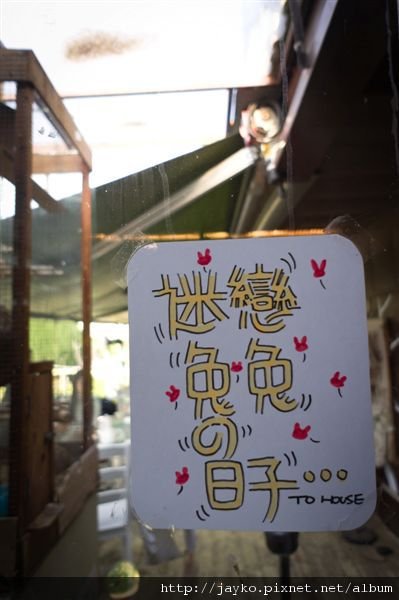 迷戀
兔兔
の
日子...
TO HOUSE
http://jayko.pixnet.net/album